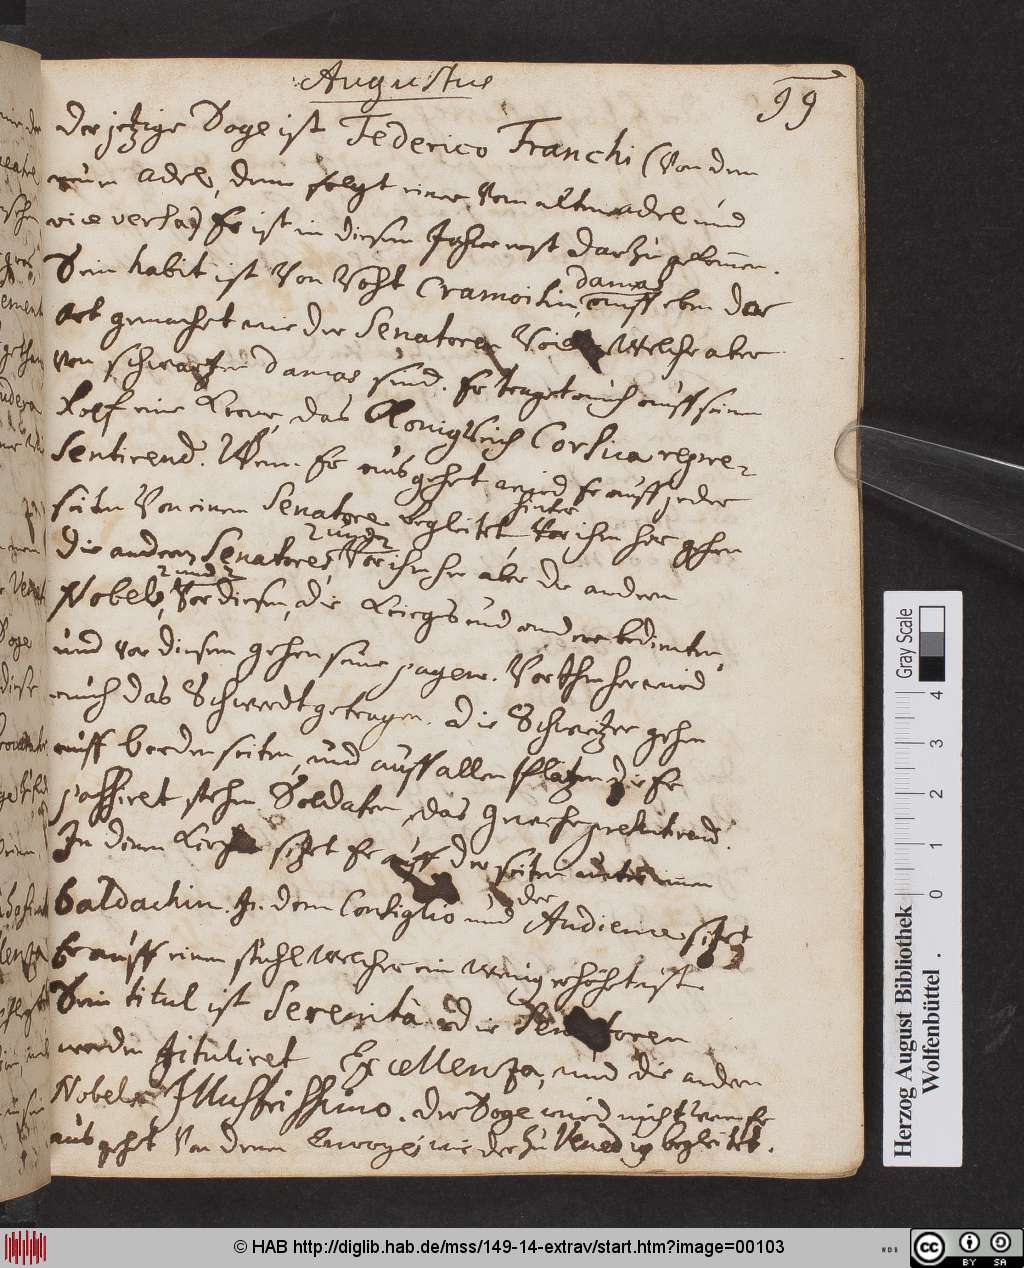 Augustus
99
Der jetzige Doge ist Federico Franchi (Von dem
neuen Adel, denn folgt einer vom alten adel und
vice versa) Er ist in diesem Jahr erst darzu gekommen.
Sein habit ist Von Roht Cramoisin
damas
auff eben der
Art gemachet wie der Senatoren Welche aber
von schwartzen damas sind. Er traget auch auff seinem
Kopf eine Krone, das Königreich Corsica repre-
sentirend. Wenn Er ausgehet wird Er auff jeder
seiten Von einem Senatore begleitet
hinter
Vor ihm her gehen
die andern Senatores,
und
Vor ihm her aber die andern
Nobeles,
und
Vor diesen, die Kriegs und andere bedienten,
und vor diesem gehen seine pagen. Vor Ihm her wird
auch das Schwerdt getragen. Die Schweitzer gehen
auff beeden seiten, und auff allen Plätzen die Er
passiret stehen Soldaten, das Gewehr presentirend.
In denen Kirchen sitzet Er auff der seiten unter einem
Baldachin. In dem Consiglio und
der
Audience sitzet
Er auff einem stuhl Welcher ein wenig erhöhet ist.
Sein titul ist Serenità die Senatoren
werden tituliret Excellenza, und die andern
Nobeles Illustrissimo. Der Doge wird nicht wenn Er
ausgehet Von denen Envoyés wie der zu Venedig begleitet.
Gray Scale
0 1 2 3 4
Herzog August Bibliothek
Wolfenbüttel .
© HAB http://diglib.hab.de/mss/149-14-extrav/start.htm?image=00103
cc BY SA